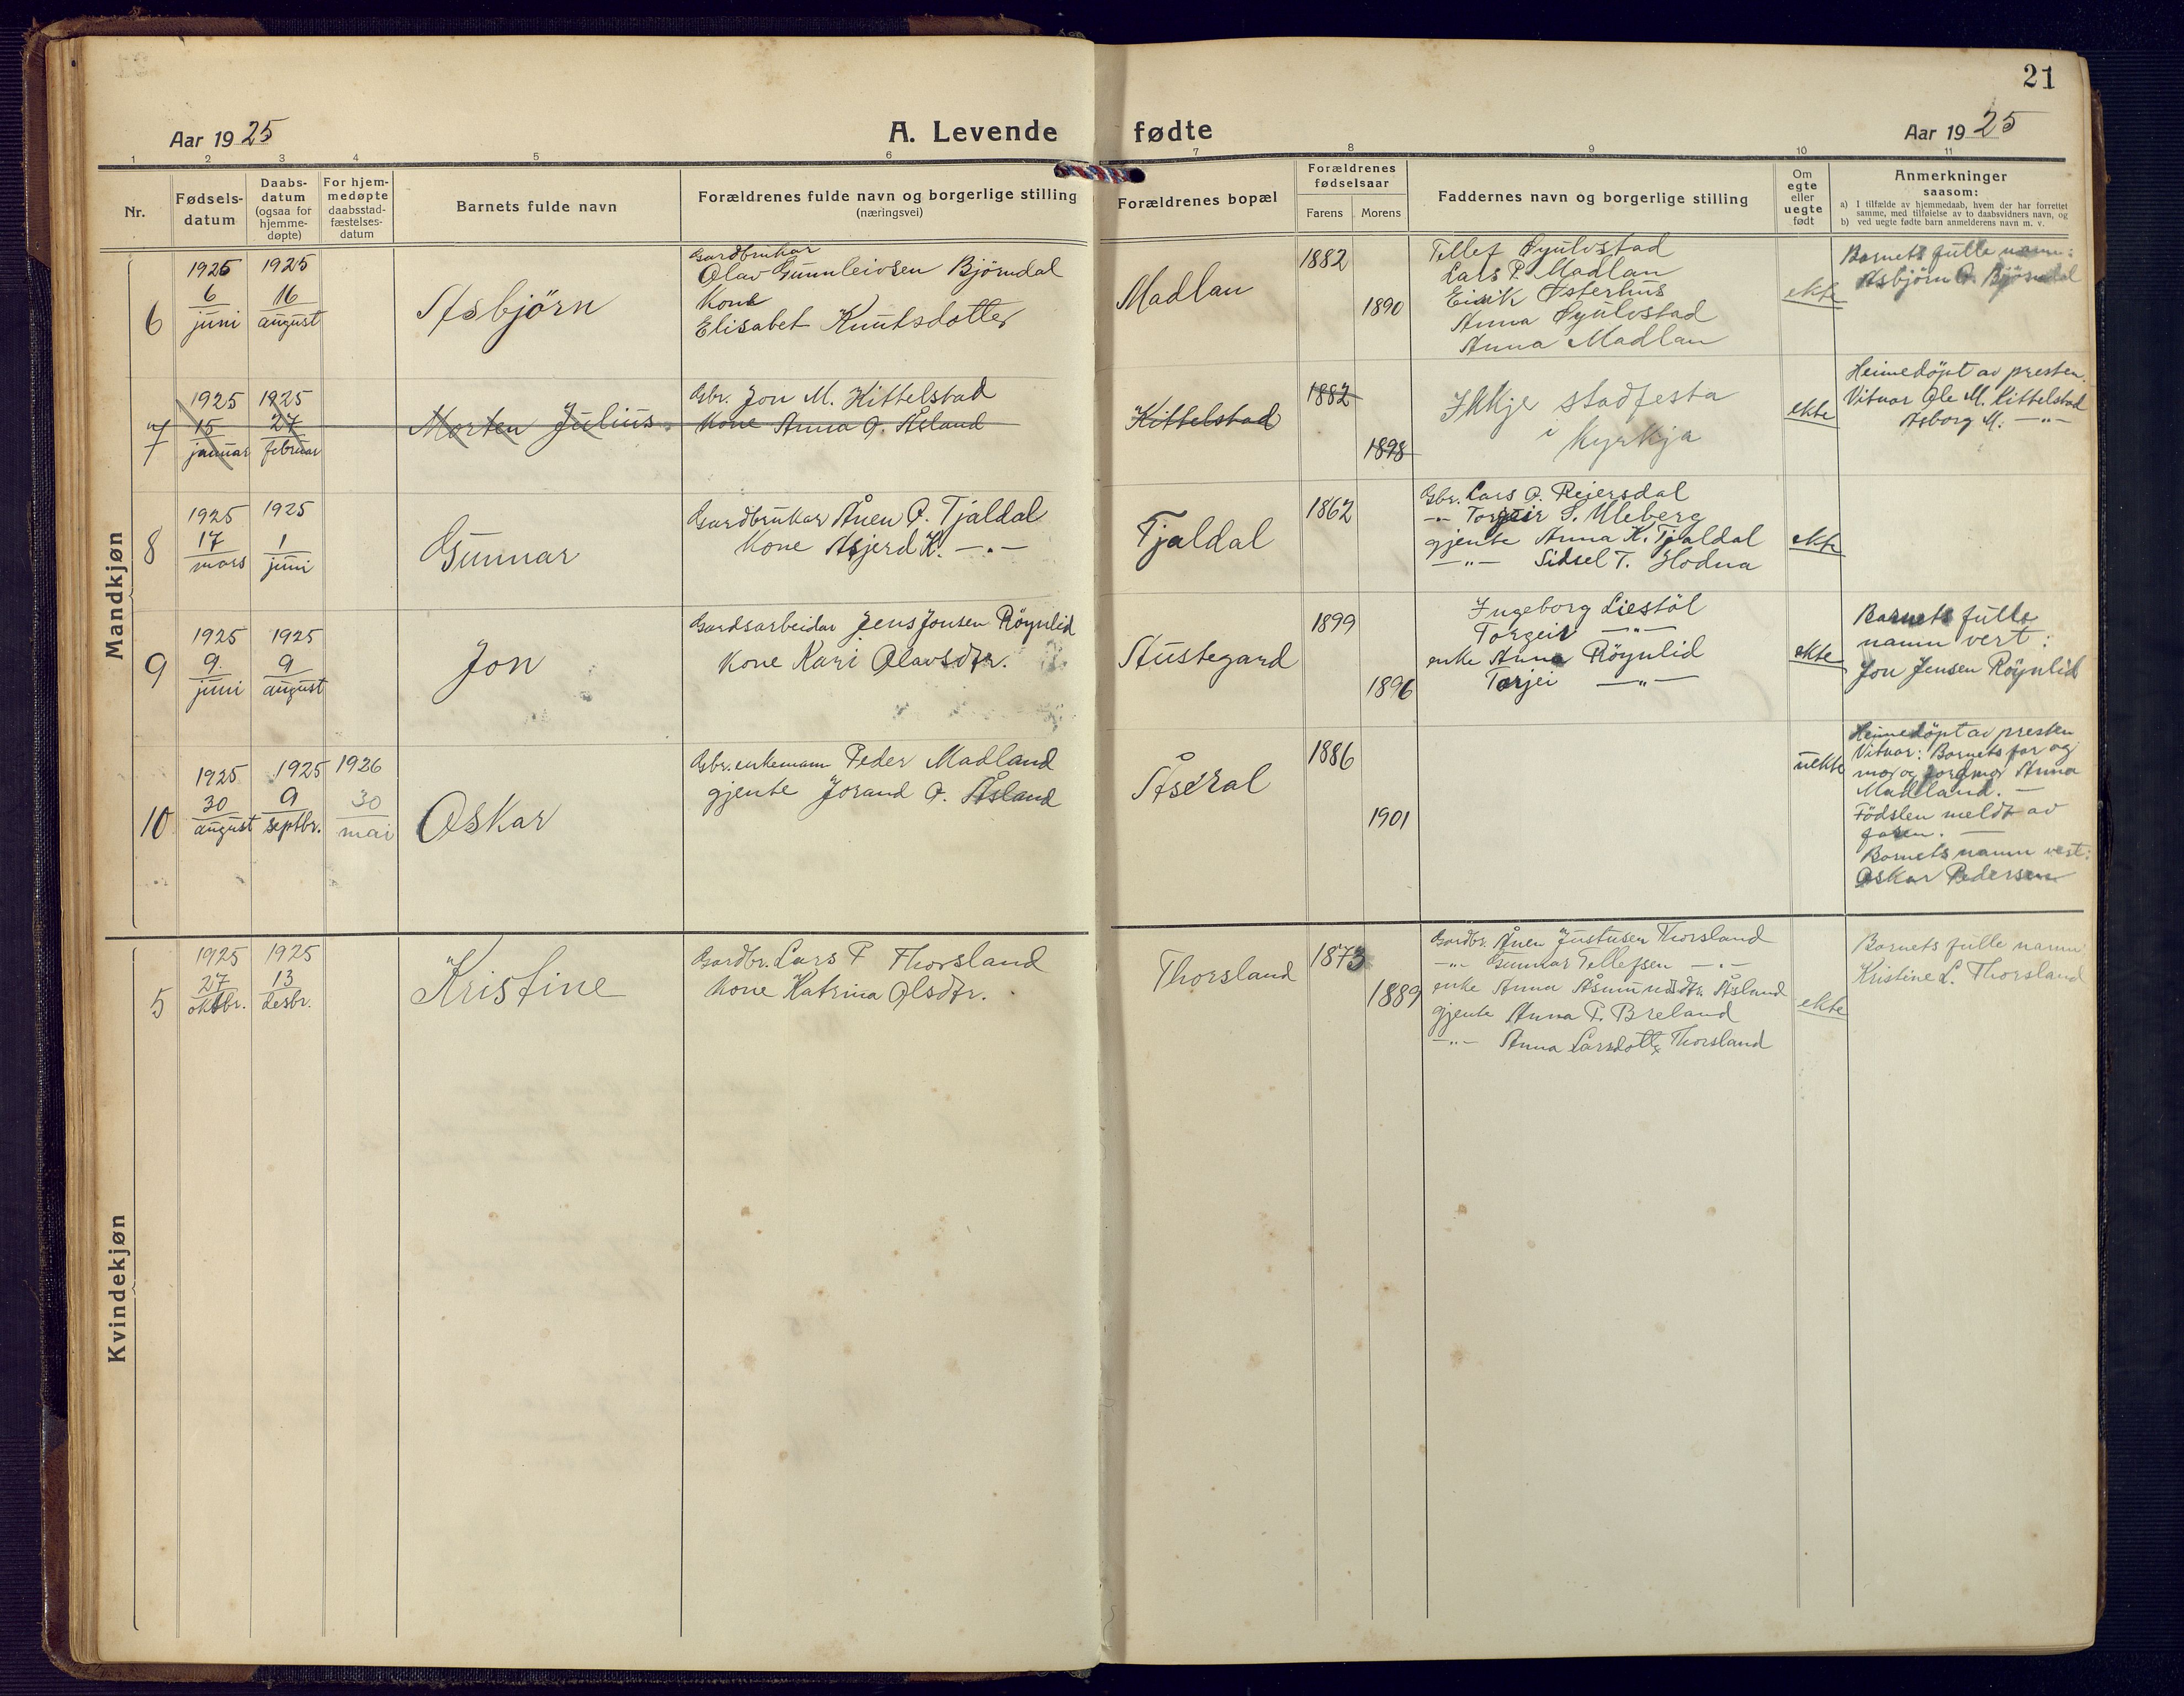 21
Aar 1925
A. Levende fødte
Aar 1925
1 2 3 4 5 6 7 8 9 10 11
Nr.
Fødsels-
datum
Daabs-
datum
(ogsaa for
hjemme-
døpte)
For hjem-
medøpte
daabsstad-
fæstelses-
datum
Barnets fulde navn
Forældrenes fulde navn og borgerlige stilling
(næringsvei)
Forældrenes bopæl
Forældrenes
fødselsaar
Farens
Morens
Faddernes navn og borgerlige stilling
Om
egte
eller
uegte
født
Anmerkninger
saasom:
a) I tilfælde av hjemmedaab, hvem der har forrettet
samme, med tilføielse av to daabsvidners navn, og
b) ved uegte fødte barn anmelderens navn m. v.
Mandkjøn
6
1925
6
juni
1925
16
august
Asbjörn
Gardbrukar
Olav Gunnleivsen Björndal
Kone
Elisabet Knutsdotter
Madlan
1882
1890
Tellef Öyulvstad
Lars P. Madlan
Eirik Østerhus
Anna Öyulvstad
Anna Madlan
ekte
Barnets fulle namn:
Asbjörn O. Björndal
7
1925
15
januar
1925
27
februar
Morten Julius
Gbr. Jon M. Kittelstad
Kone Anna O. Åsland
Kittelstad
1882
1898
Ikkje stadfesta
i kyrkja
ekte
Heimedöpt av presten.
Vitnar Ole M. Kittelstad
Asborg M. —"—
8
1925
17
mars
1925
1
juni
Gunnar
Gardbrukar Ånen O. Tjaldal
Kone Asjerd K. —"—
Tjaldal
1862
Gbr. Lars O. Reiersdal
—"— Torgeir S. Uleberg
gjente Anna K. Tjaldal
—"— Sidsel T. Hodna
ekte
9
1925
9
juni
1925
9
august
Jon
Gardsarbeidar Jens Jonsen Röynlid
Kone Kari Olavsdtr.
Austegard
1899
1896
Ingeborg Liestöl
Torgeir —"—
enke Anna Röynlid
Torjei —"—
ekte
Barnets fulle
namn vert:
Jon Jensen Röynlid
10
1925
30
august
1925
9
septbr.
1926
30
mai
Oskar
Gbr. enkemann Peder Madland
gjente Jorand O. Åsland
Åseral
1886
1901
uekte
Heimedöpt av presten
Vitnar: Barnets far og
mor og jordmor Anna
Madland. —
Födslen meldt av
faren. —
Barnets namn vert:
Oskar Pedersen
Kvindekjøn
5
1925
27
oktbr.
1925
13
desbr.
Kristine
Gardbr. Lars P Thorsland
Kone Katrina Olsdtr.
Thorsland
1873
1889
Gardbr. Ånen Justusen Thorsland
—"— Gunnar Tellefsen —"—
enke Anna Åsmundsdtr. Åsland
gjente Anna P. Breland
—"— Anna Larsdotter Thorsland
ekte
Barnets fulle namn
Kristine L. Thorsland